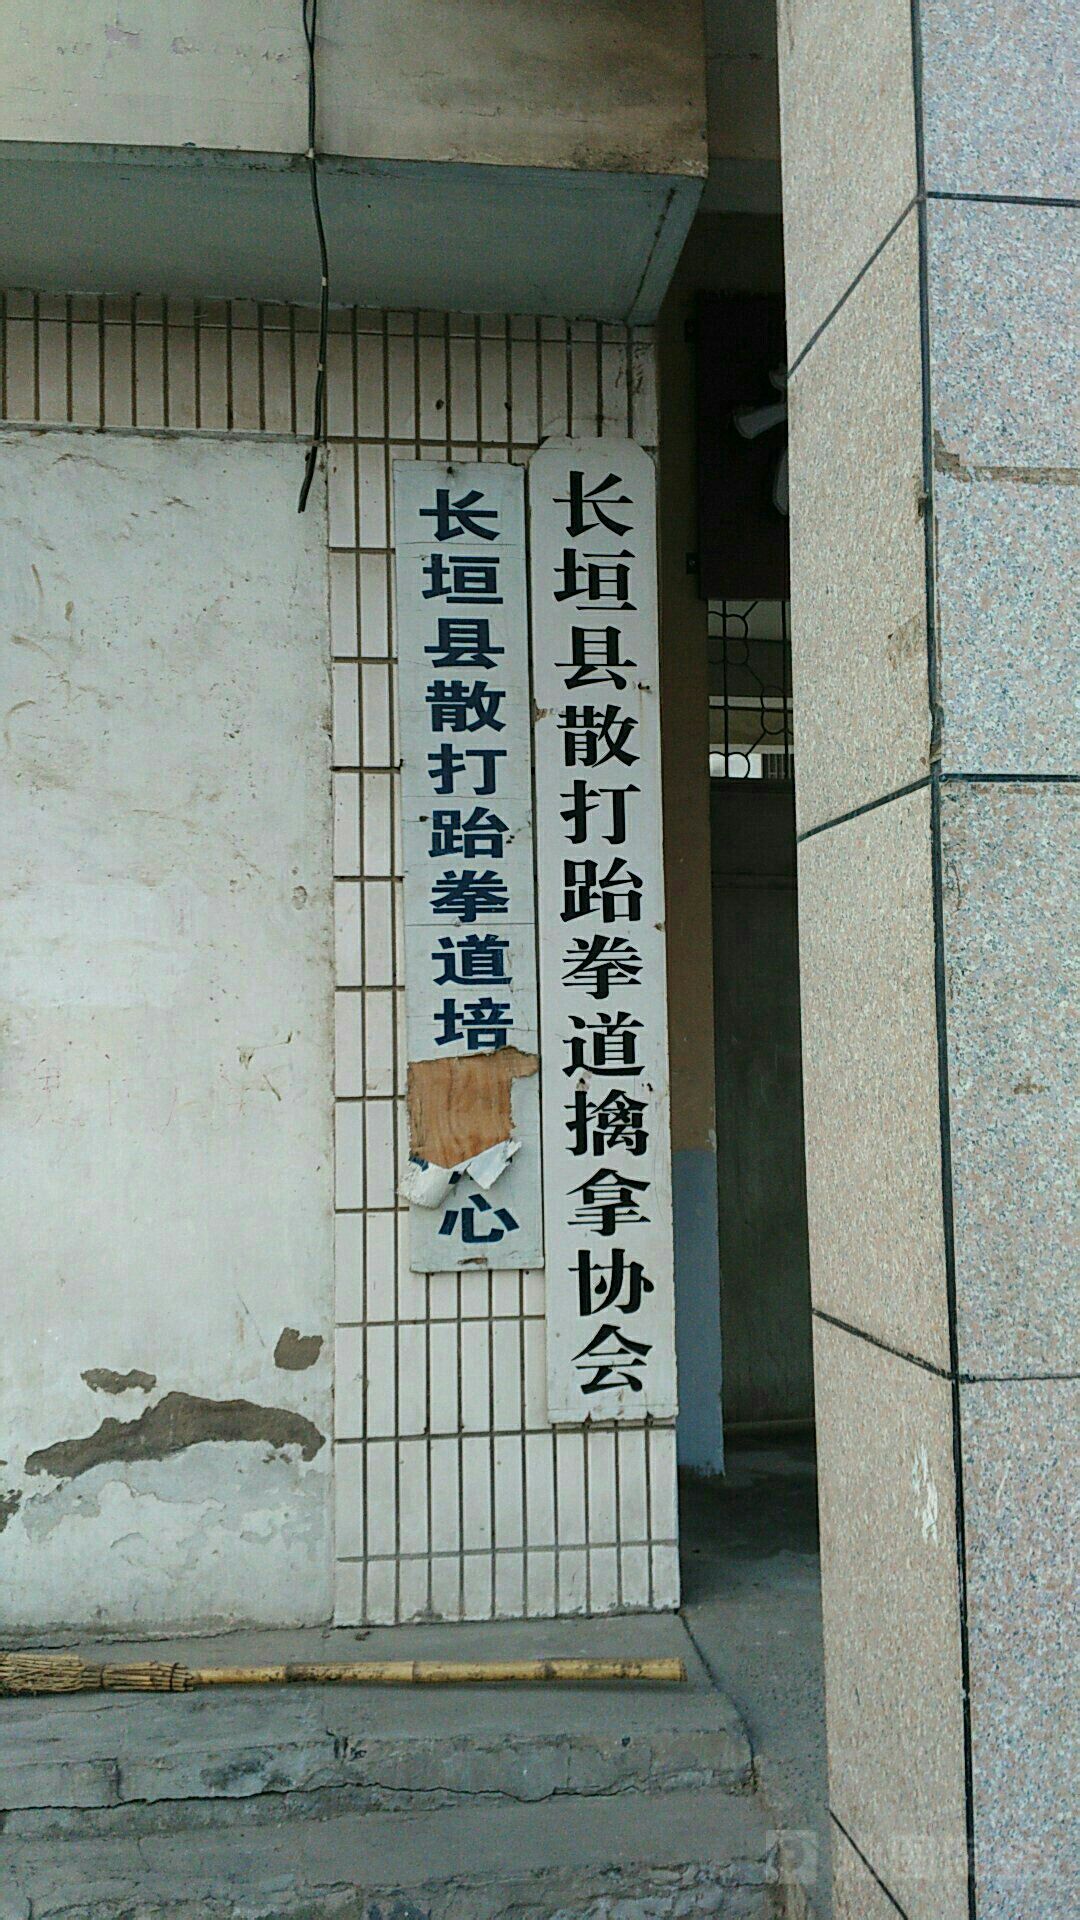 长垣县散打跆拳道擒拿协会
长垣县散打跆拳道培
心